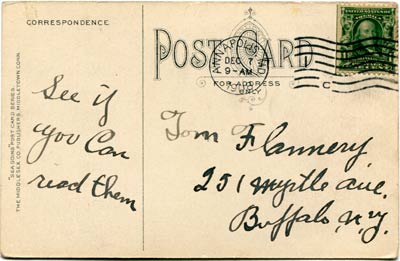 CORRESPONDENCE
POST CARD
FOR ADDRESS
ONLY
ANNAPOLIS, MD
DEC 7
9-AM
C
See if
you Can
read them
"SEASONS" POST CARD SERIES.
THE MIDDLESEX CO. PUBLISHERS, MIDDLETOWN, CONN.
Tom Flannery
251 Myrtle ave.
Buffalo, N.Y.